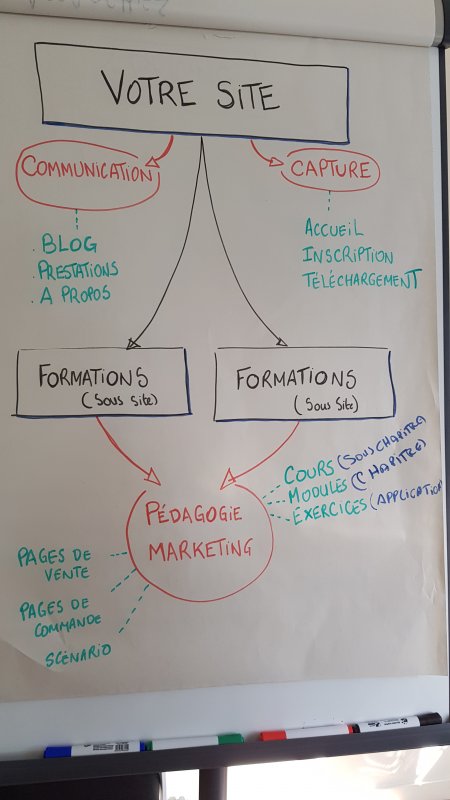 VOTRE SITE
COMMUNICATION
CAPTURE
. BLOG
. PRESTATIONS
. A PROPOS
ACCUEIL
INSCRIPTION
TÉLÉCHARGEMENT
FORMATIONS
(Sous Site)
FORMATIONS
(Sous Site)
COURS (SOUS CHAPITRE)
MODULES (CHAPITRE)
EXERCICES (APPLICATION
PÉDAGOGIE
MARKETING
PAGES DE
VENTE
PAGES DE
COMMANDE
SCÉNARIO